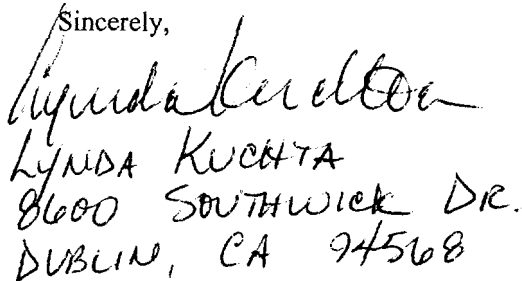 Sincerely,
Lynda Kuchta
LYNDA KUCHTA
8600 SOUTHWICK DR.
DUBLIN, CA 94568